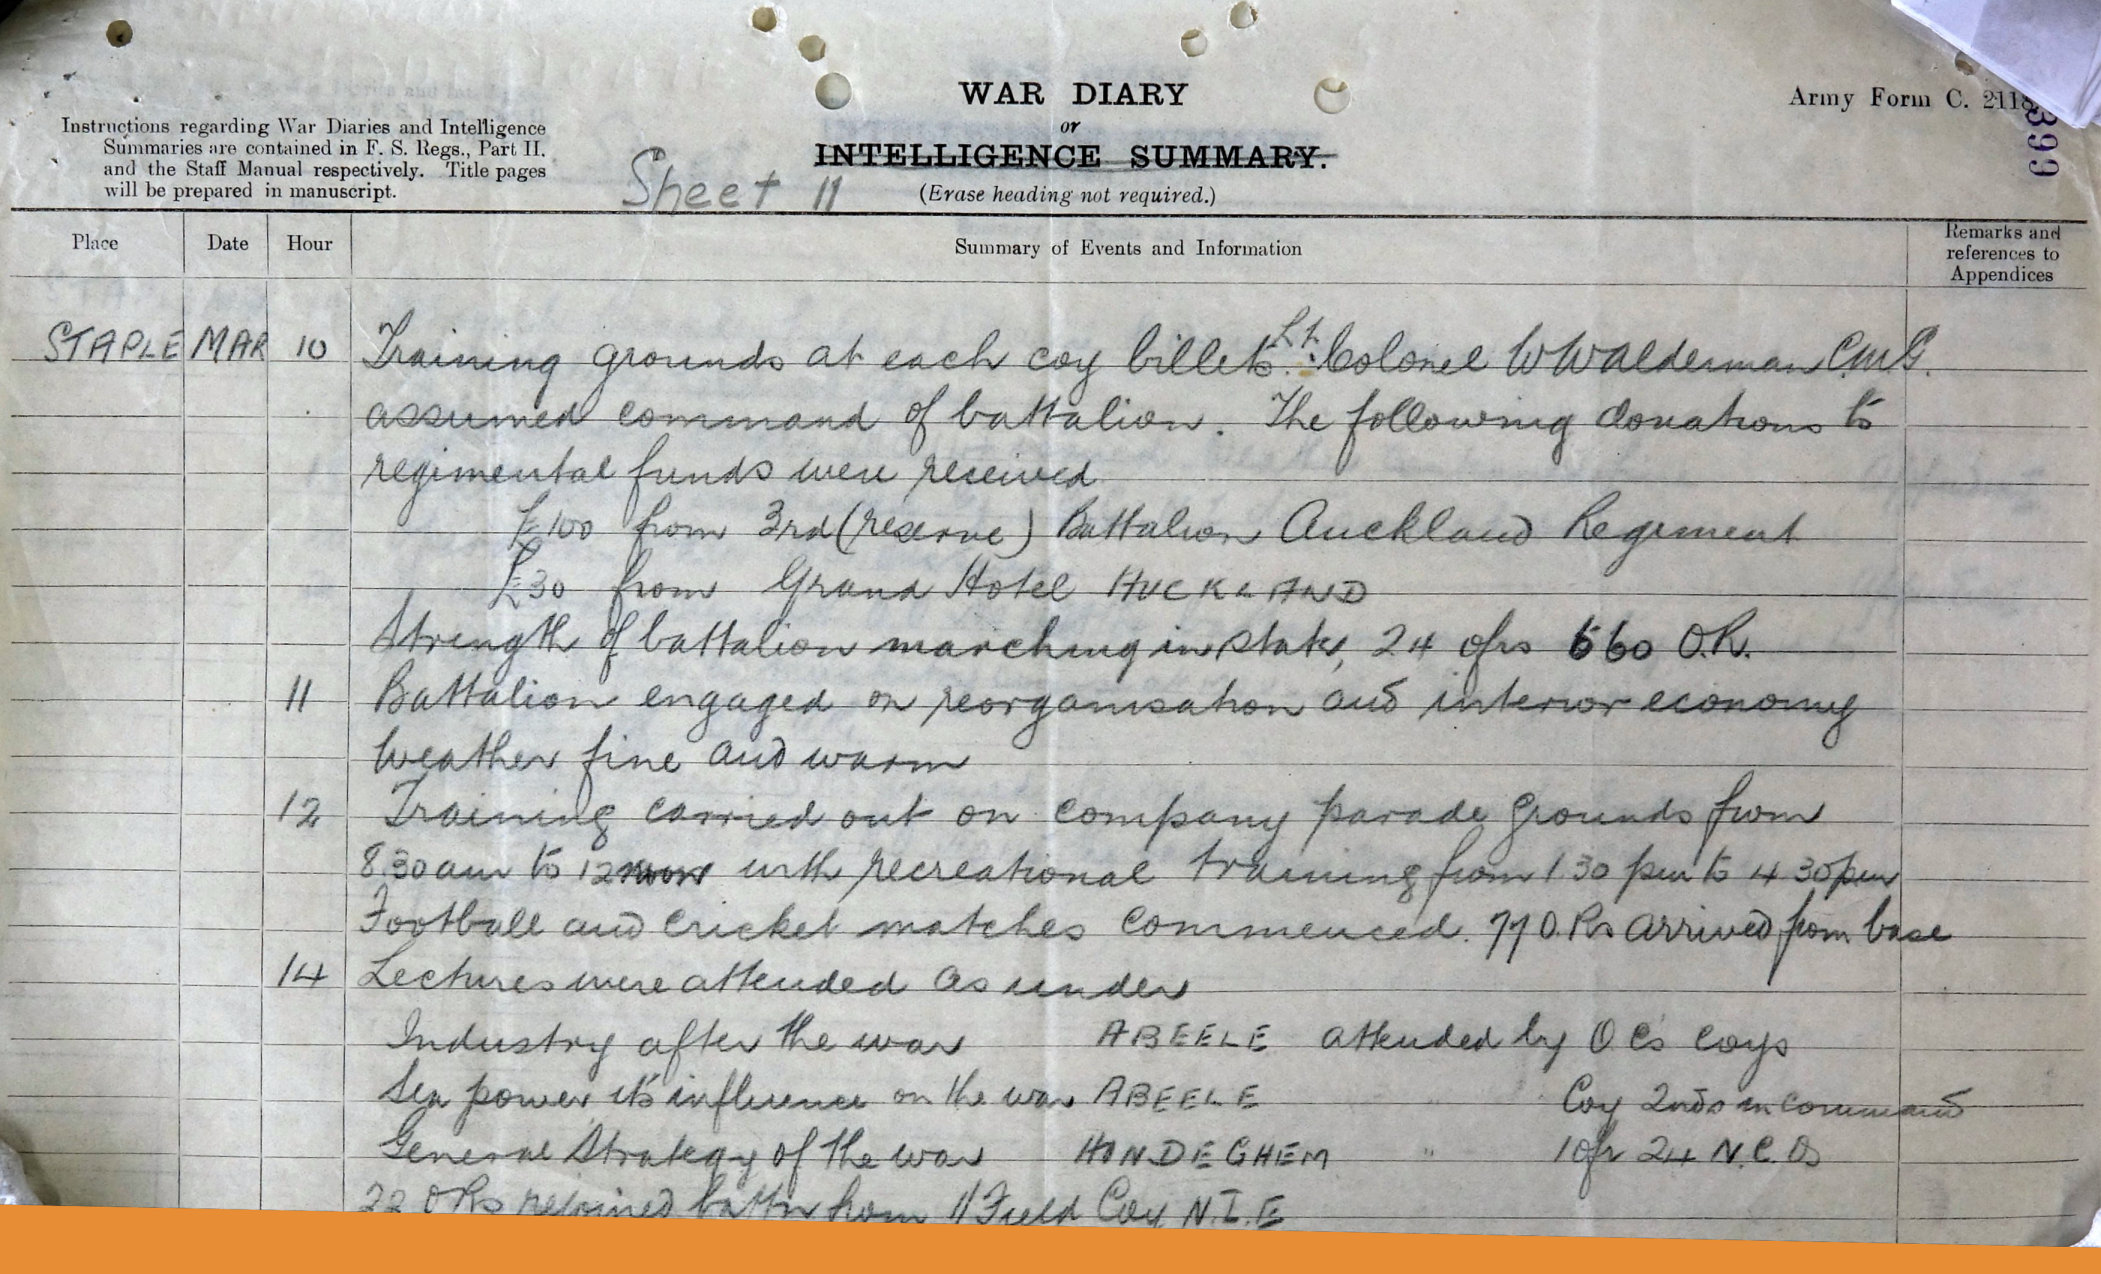 WAR DIARY
or
INTELLIGENCE SUMMARY.
(Erase heading not required.)
Army Form C. 2118
399
Instructions regarding War Diaries and Intelligence
Summaries are contained in F. S. Regs., Part II.
and the Staff Manual respectively. Title pages
will be prepared in manuscript.
Sheet 11
Place Date Hour Summary of Events and Information Remarks and references to Appendices
STAPLE MAR 10 Training grounds at each coy billets. Lt. Colonel W W Alderman C.M.G.
assumed command of battalion. The following donations to
regimental funds were received
£100 from 3rd (reserve) Battalion Auckland Regiment
£30 from Grand Hotel AUCKLAND
Strength of battalion marching in state, 24 ofrs 660 O.R.
11 Battalion engaged on reorganisation and interior economy
Weather fine and warm
12 Training carried out on company parade grounds from
8.30 am to 12 noon with recreational training from 1 30 pm to 4 30 pm
Football and cricket matches commenced. 77 O.Rs arrived from base
14 Lectures were attended as under
Industry after the war ABEELE attended by O.C's Coys
Sea power it's influence on the war ABEELE " " Coy 2nds in command
General Strategy of the war HONDEGHEM " 1 Ofr 24 N.C.Os
22 O Rs rejoined battn from 11 Field Coy N.Z.E